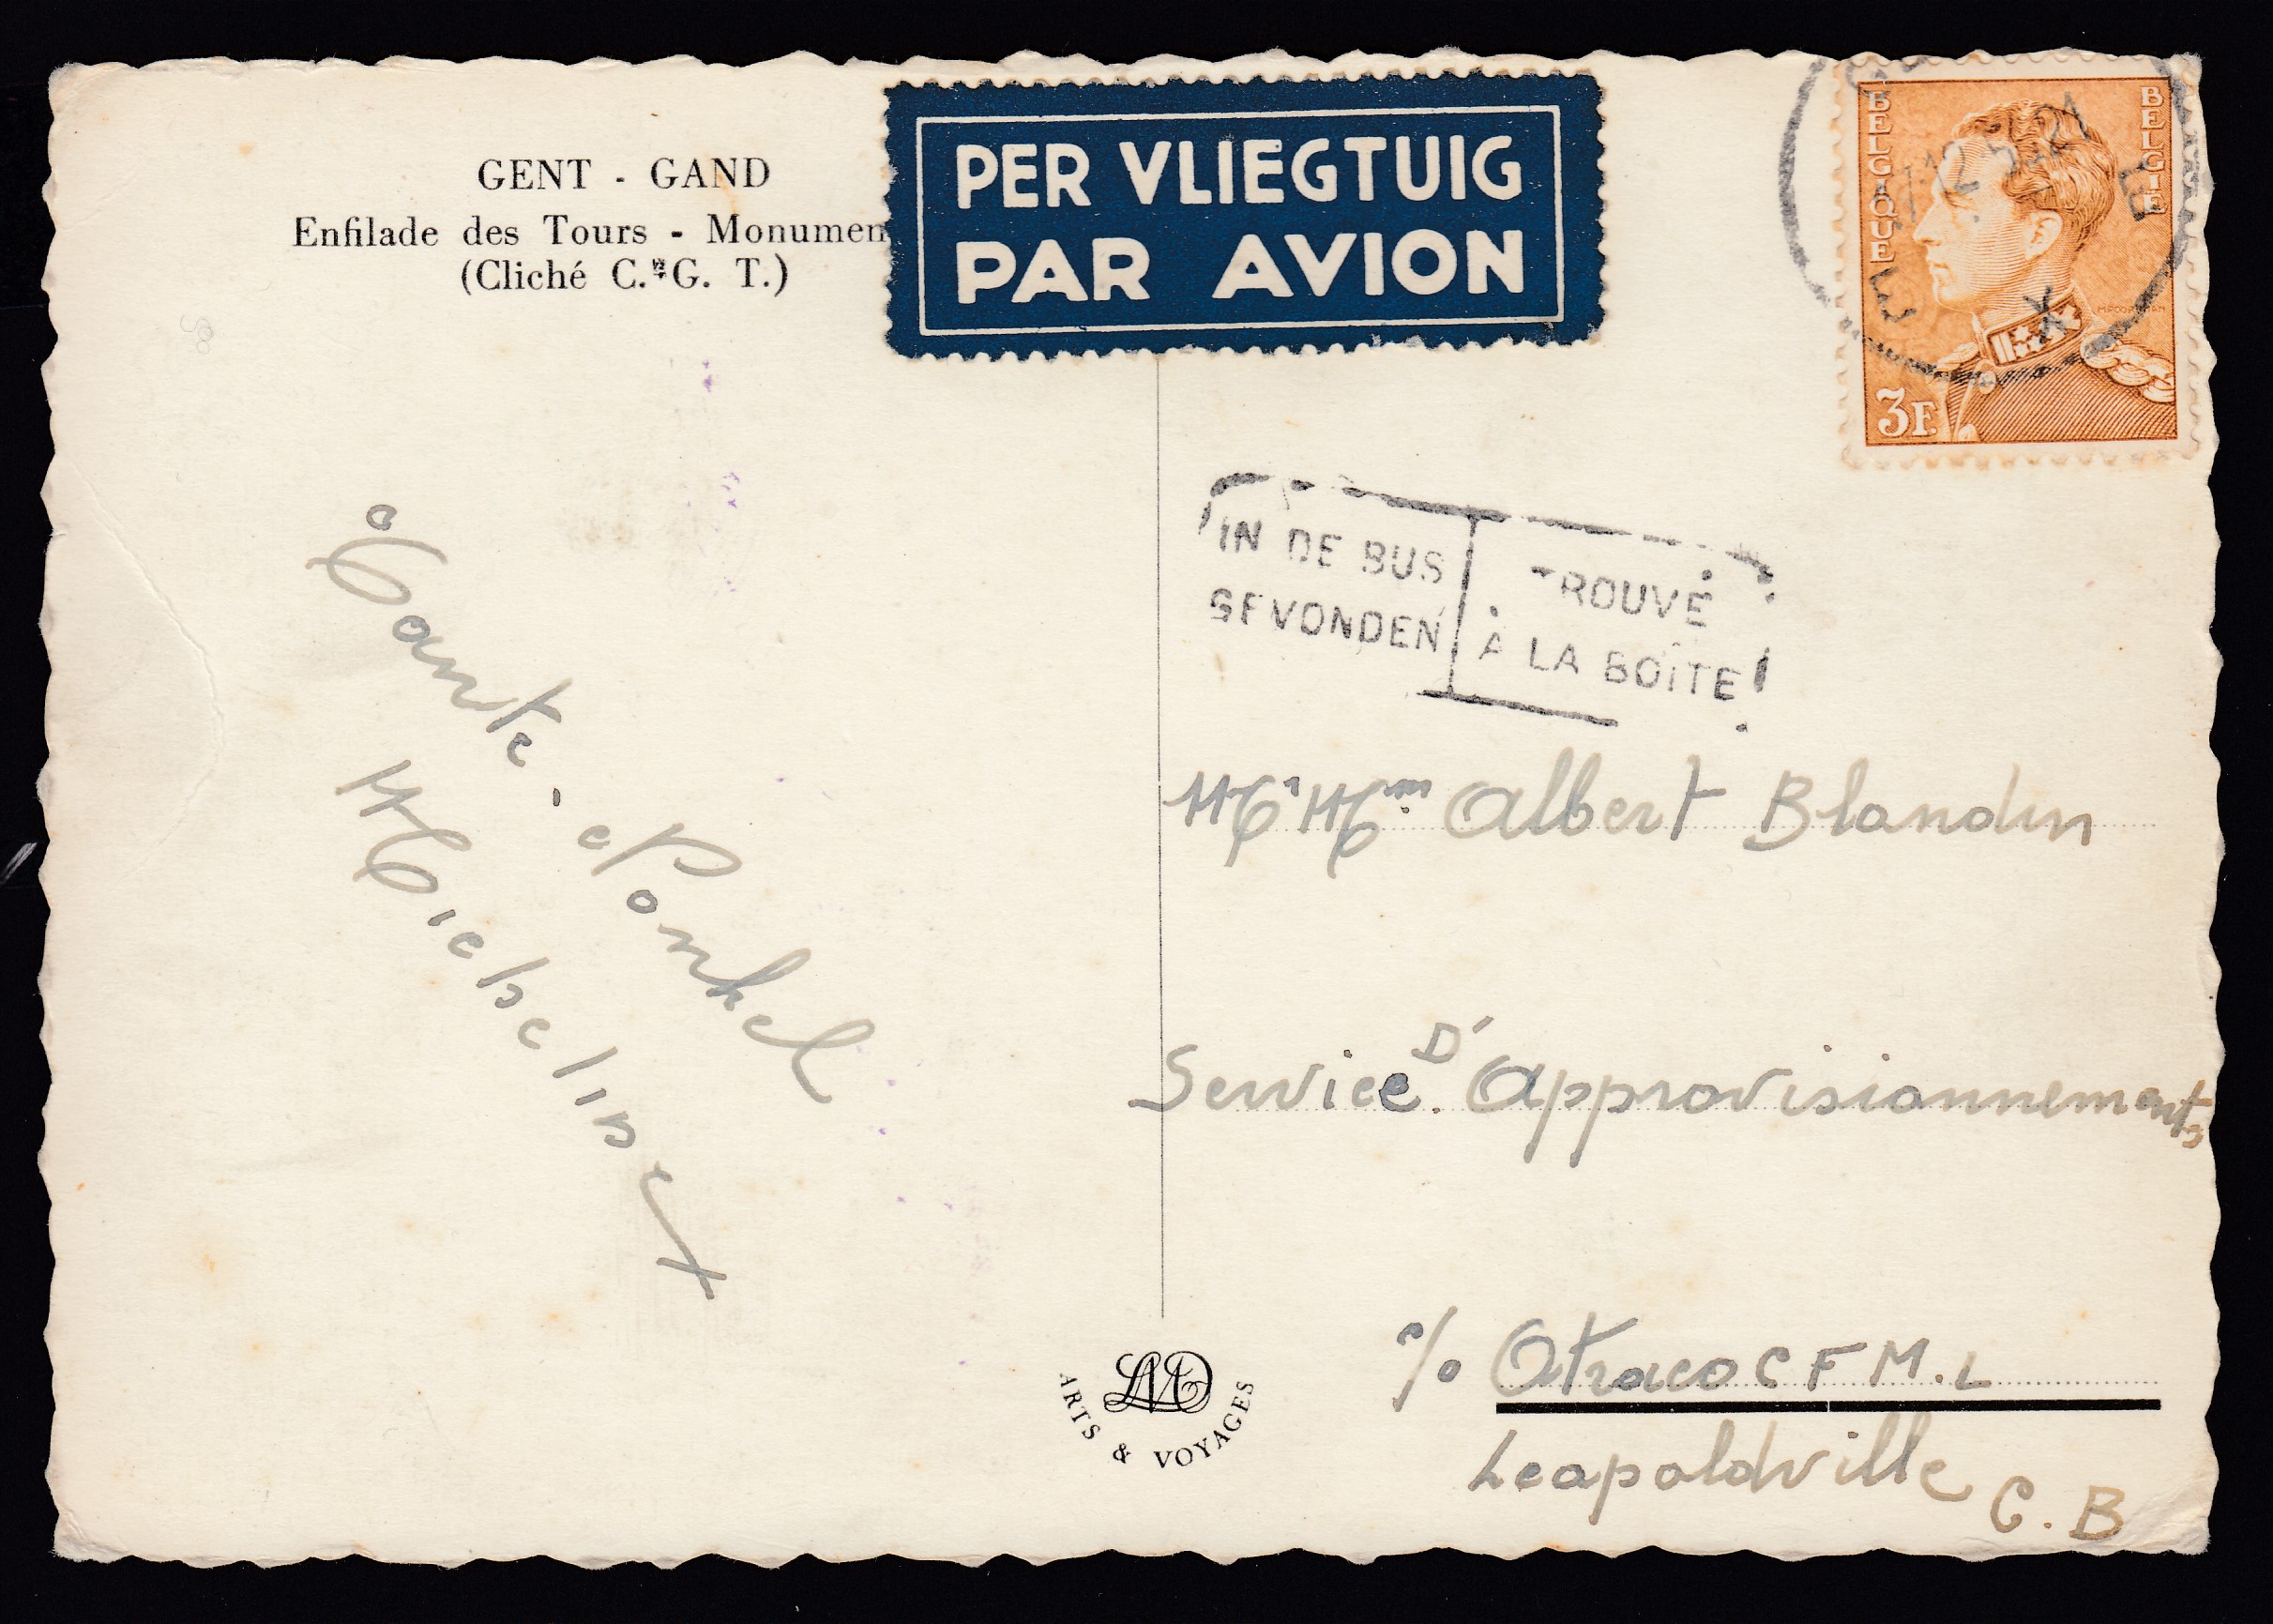 GENT - GAND
Enfilade des Tours - Monumen
(Cliché C. G. T.)
PER VLIEGTUIG
PAR AVION
BELGIQUE
BELGIE
3F.
IN DE BUS
GEVONDEN
TROUVÉ
À LA BOÎTE
Tante - Nonkel
Michelinet
Mr Mme Albert Blandin
Service D'Approvisionnements
c/o Otraco C F M. L
Leopoldville C. B
ARTS & VOYAGES